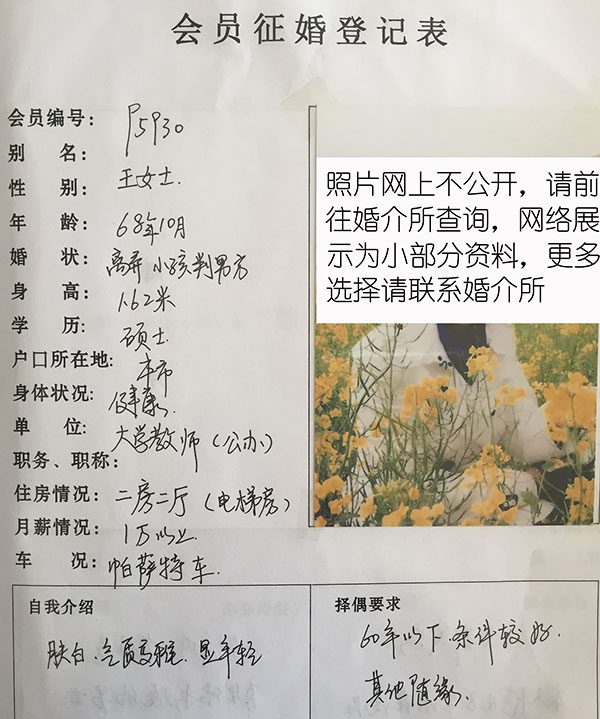 会员征婚登记表
会员编号： P5930
别 名：
性 别： 王女士.
年 龄： 68年10月
婚 状： 离异 小孩判男方
身 高： 1.62米
学 历： 硕士
户口所在地： 本市
身体状况： 健康.
单 位： 大学教师（公办）
职务、职称：
住房情况： 二房二厅（电梯房）
月薪情况： 1万以上
车 况： 帕萨特车.
照片网上不公开，请前
往婚介所查询，网络展
示为小部分资料，更多
选择请联系婚介所
自我介绍
肤白.气质 显年轻
择偶要求
60年以下.条件较好.
其他随缘.